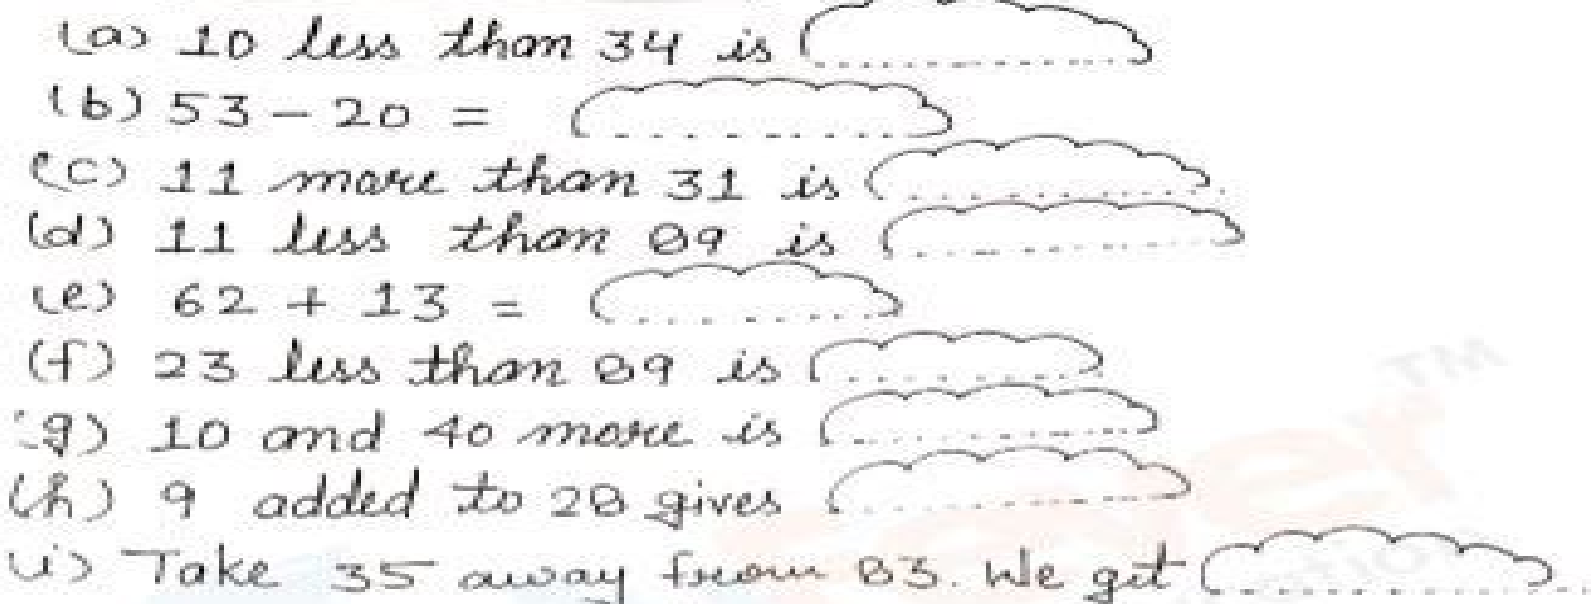 (a) 10 less than 34 is
(b) 53 - 20 =
(c) 11 more than 31 is
(d) 11 less than 89 is
(e) 62 + 13 =
(f) 23 less than 89 is
(g) 10 and 40 more is
(h) 9 added to 28 gives
(i) Take 35 away from 83. We get
TM